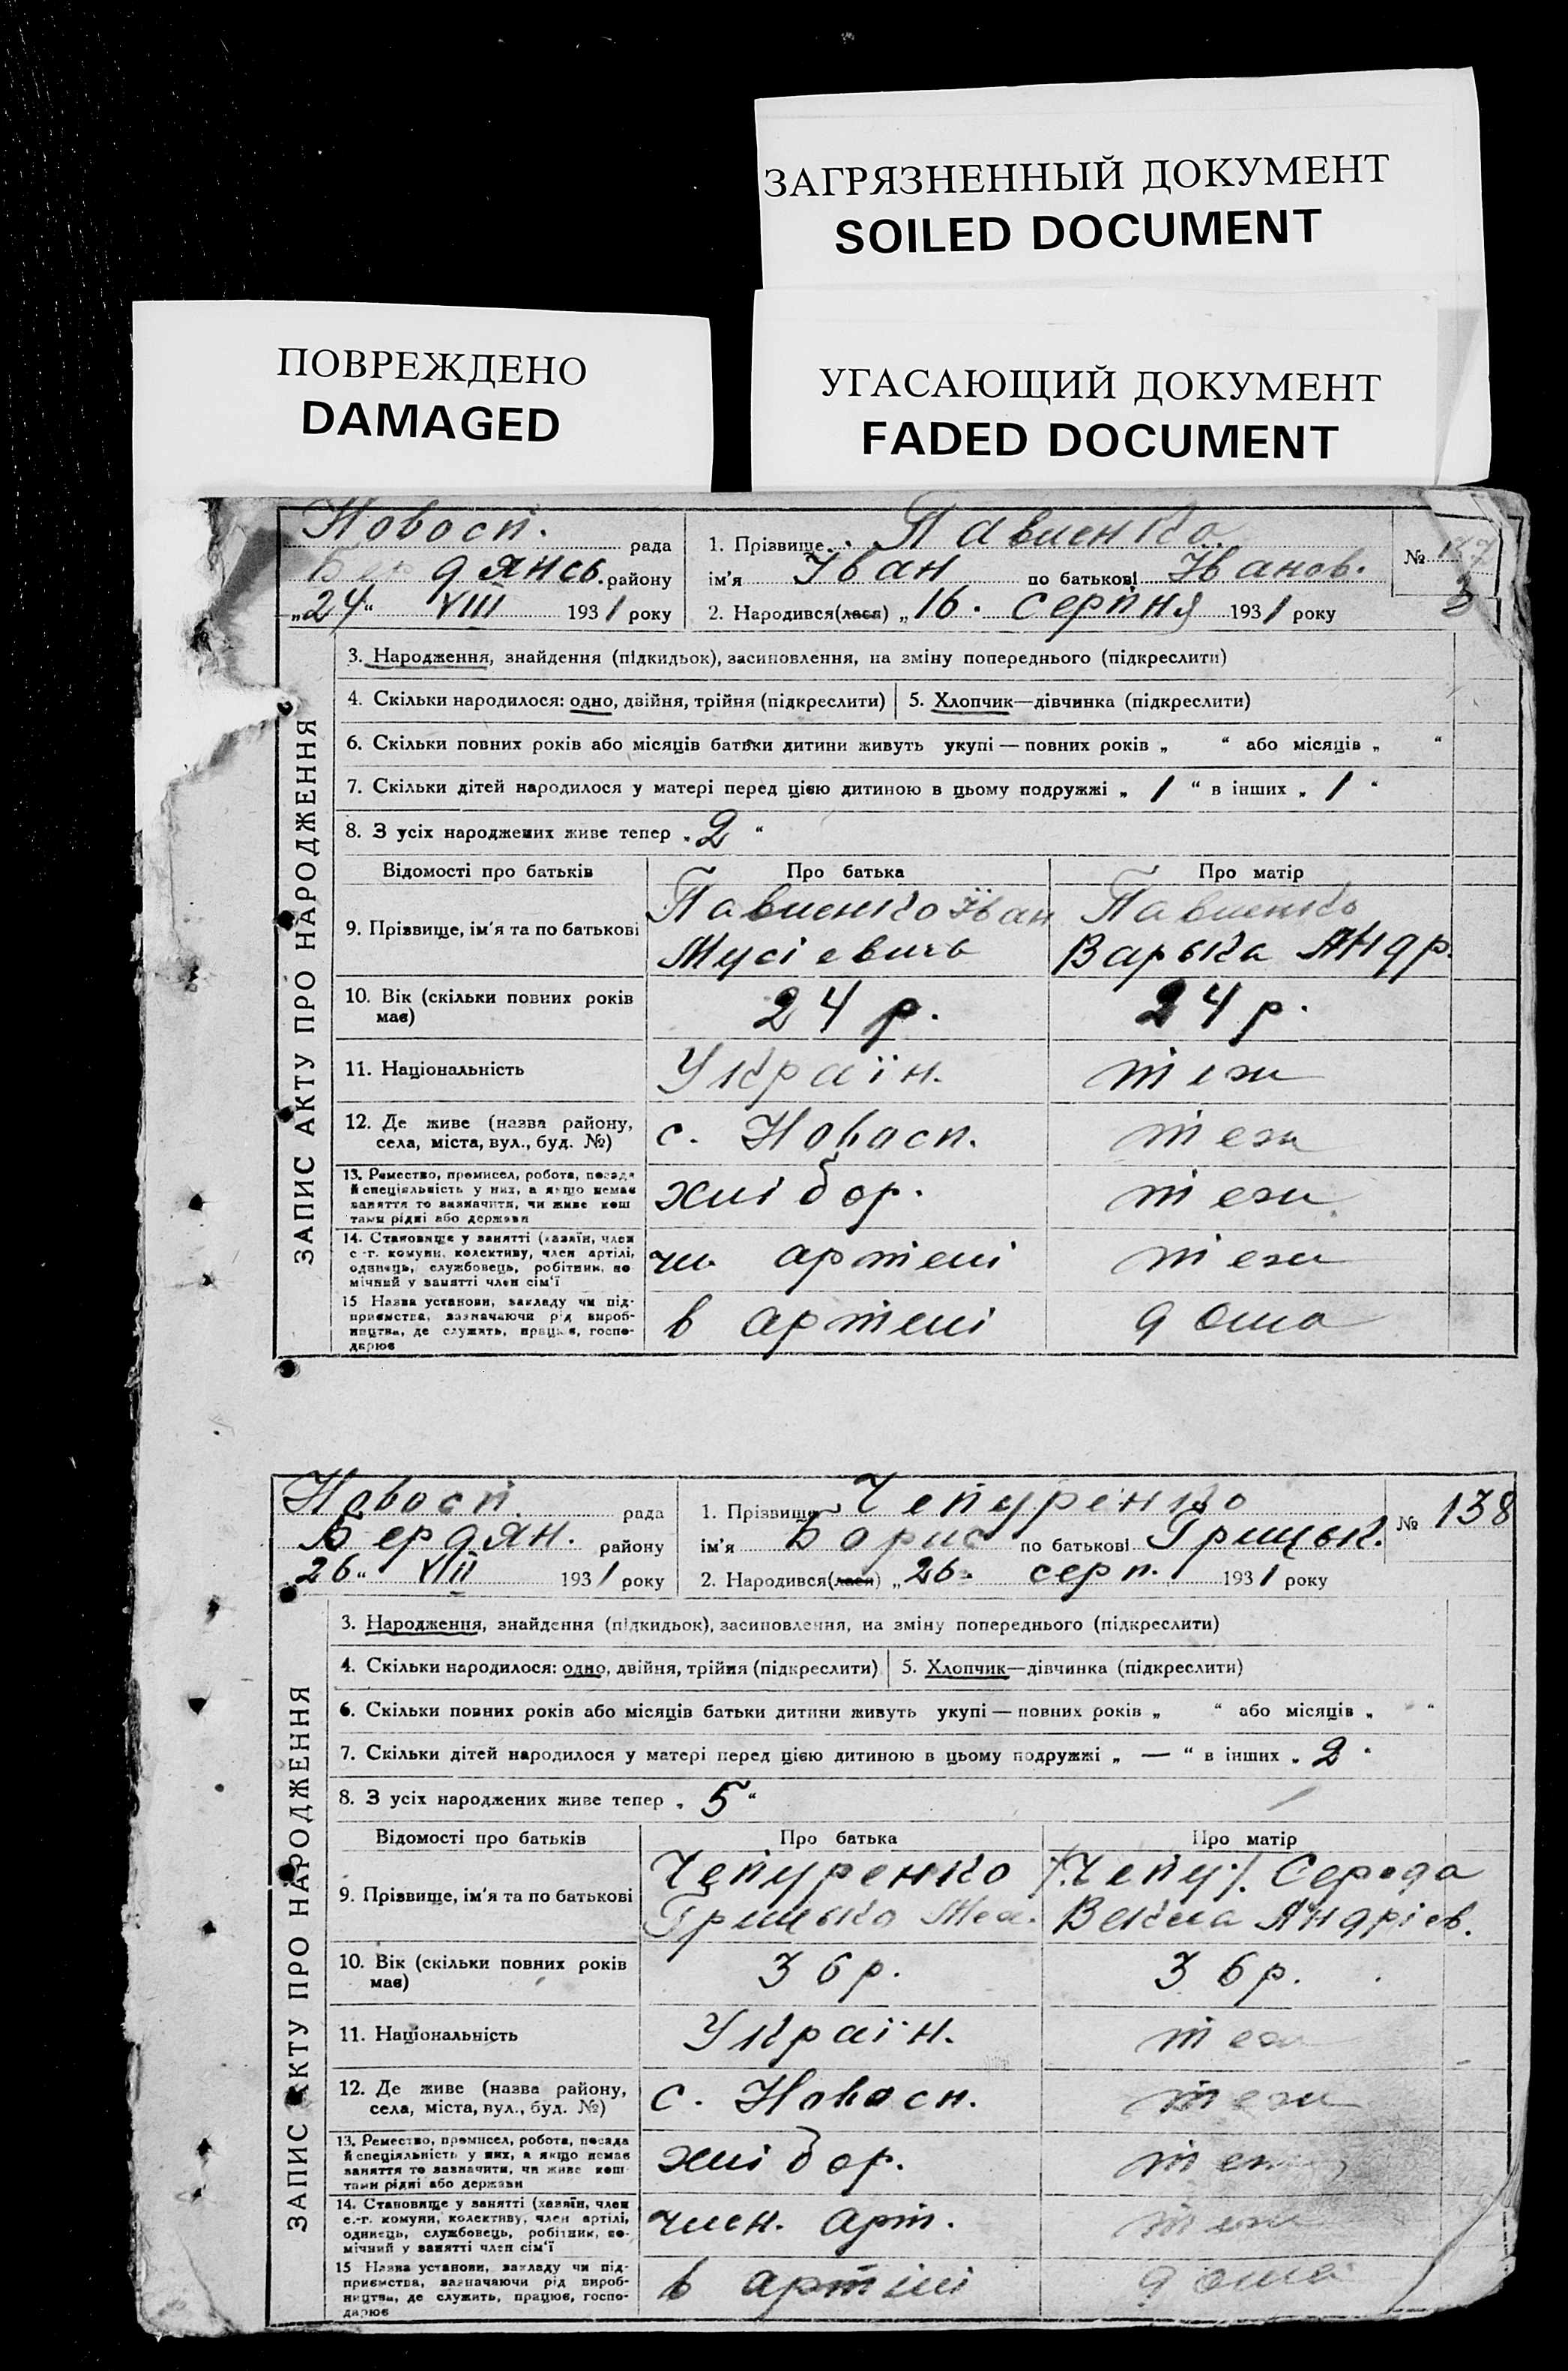 ЗАГРЯЗНЕННЫЙ ДОКУМЕНТ
SOILED DOCUMENT
ПОВРЕЖДЕНО
DAMAGED
УГАСАЮЩИЙ ДОКУМЕНТ
FADED DOCUMENT
Новосп. рада
Бердянсь. району
„24“ VIII 1931 року
1. Прізвище Павленко
ім'я Іван по батькові Іванов.
2. Народився(лася) „16. серпня 1931 року
№ 137
3
ЗАПИС АКТУ ПРО НАРОДЖЕННЯ
3. Народження, знайдення (підкидьок), засиновлення, на зміну попереднього (підкреслити)
4. Скільки народилося: одно, двійня, трійня (підкреслити) 5. Хлопчик—дівчинка (підкреслити)
6. Скільки повних років або місяців батьки дитини живуть укупі — повних років „ “ або місяців „ “
7. Скільки дітей народилося у матері перед цією дитиною в цьому подружжі „ 1 “ в інших „ 1 “
8. З усіх народжених живе тепер „ 2 “
Відомості про батьків Про батька Про матір
9. Прізвище, ім'я та по батькові Павленко Іван Мусієвичь Павленко Варька Андр.
10. Вік (скільки повних років має) 24 р. 24 р.
11. Національність Україн. теж
12. Де живе (назва району, села, міста, вул., буд. №) с. Новосп. теж
13. Ремество, промисел, робота, посада й спеціяльність у них, а якщо немає заняття то зазначити, чи живе кош тами рідні або держави хлібор. теж
14. Становище у занятті (хазяїн, член с.-г. комуни, колективу, член артілі, одинець, службовець, робітник, по-мічний у занятті член сім'ї чл. артелі теж
15 Назва установи, закладу чи під-приємства, зазначаючи рід вироб-ництва, де служить, працює, госпо-дарює в артелі дома
Новосп. рада
Бердян. району
„26“ VIII 1931 року
1. Прізвище Чепуренко
ім'я Борис по батькові Грицьк.
2. Народився(лася) „26. серп. 1931 року
№ 138
ЗАПИС АКТУ ПРО НАРОДЖЕННЯ
3. Народження, знайдення (підкидьок), засиновлення, на зміну попереднього (підкреслити)
4. Скільки народилося: одно, двійня, трійня (підкреслити) 5. Хлопчик—дівчинка (підкреслити)
6. Скільки повних років або місяців батьки дитини живуть укупі — повних років „ “ або місяців „ “
7. Скільки дітей народилося у матері перед цією дитиною в цьому подружжі „ — “ в інших „ 2 “
8. З усіх народжених живе тепер „ 5 “
Відомості про батьків Про батька Про матір
9. Прізвище, ім'я та по батькові Чепуренко Грицько /Чепу/. Середа Векла Андріев.
10. Вік (скільки повних років має) 36 р. 36 р.
11. Національність Україн. теж
12. Де живе (назва району, села, міста, вул., буд. №) с. Новосп. теж
13. Ремество, промисел, робота, посада й спеціяльність у них, а якщо немає заняття то зазначити, чи живе кош тами рідні або держави хлібор. теж
14. Становище у занятті (хазяїн, член с.-г. комуни, колективу, член артілі, одинець, службовець, робітник, по-мічний у занятті член сім'ї член. арт. теж
15 Назва установи, закладу чи під-приємства, зазначаючи рід вироб-ництва, де служить, працює, госпо-дарює в артілі дома